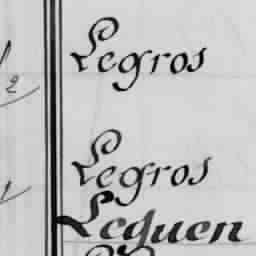 Legros
2
Legros
1
Leguen